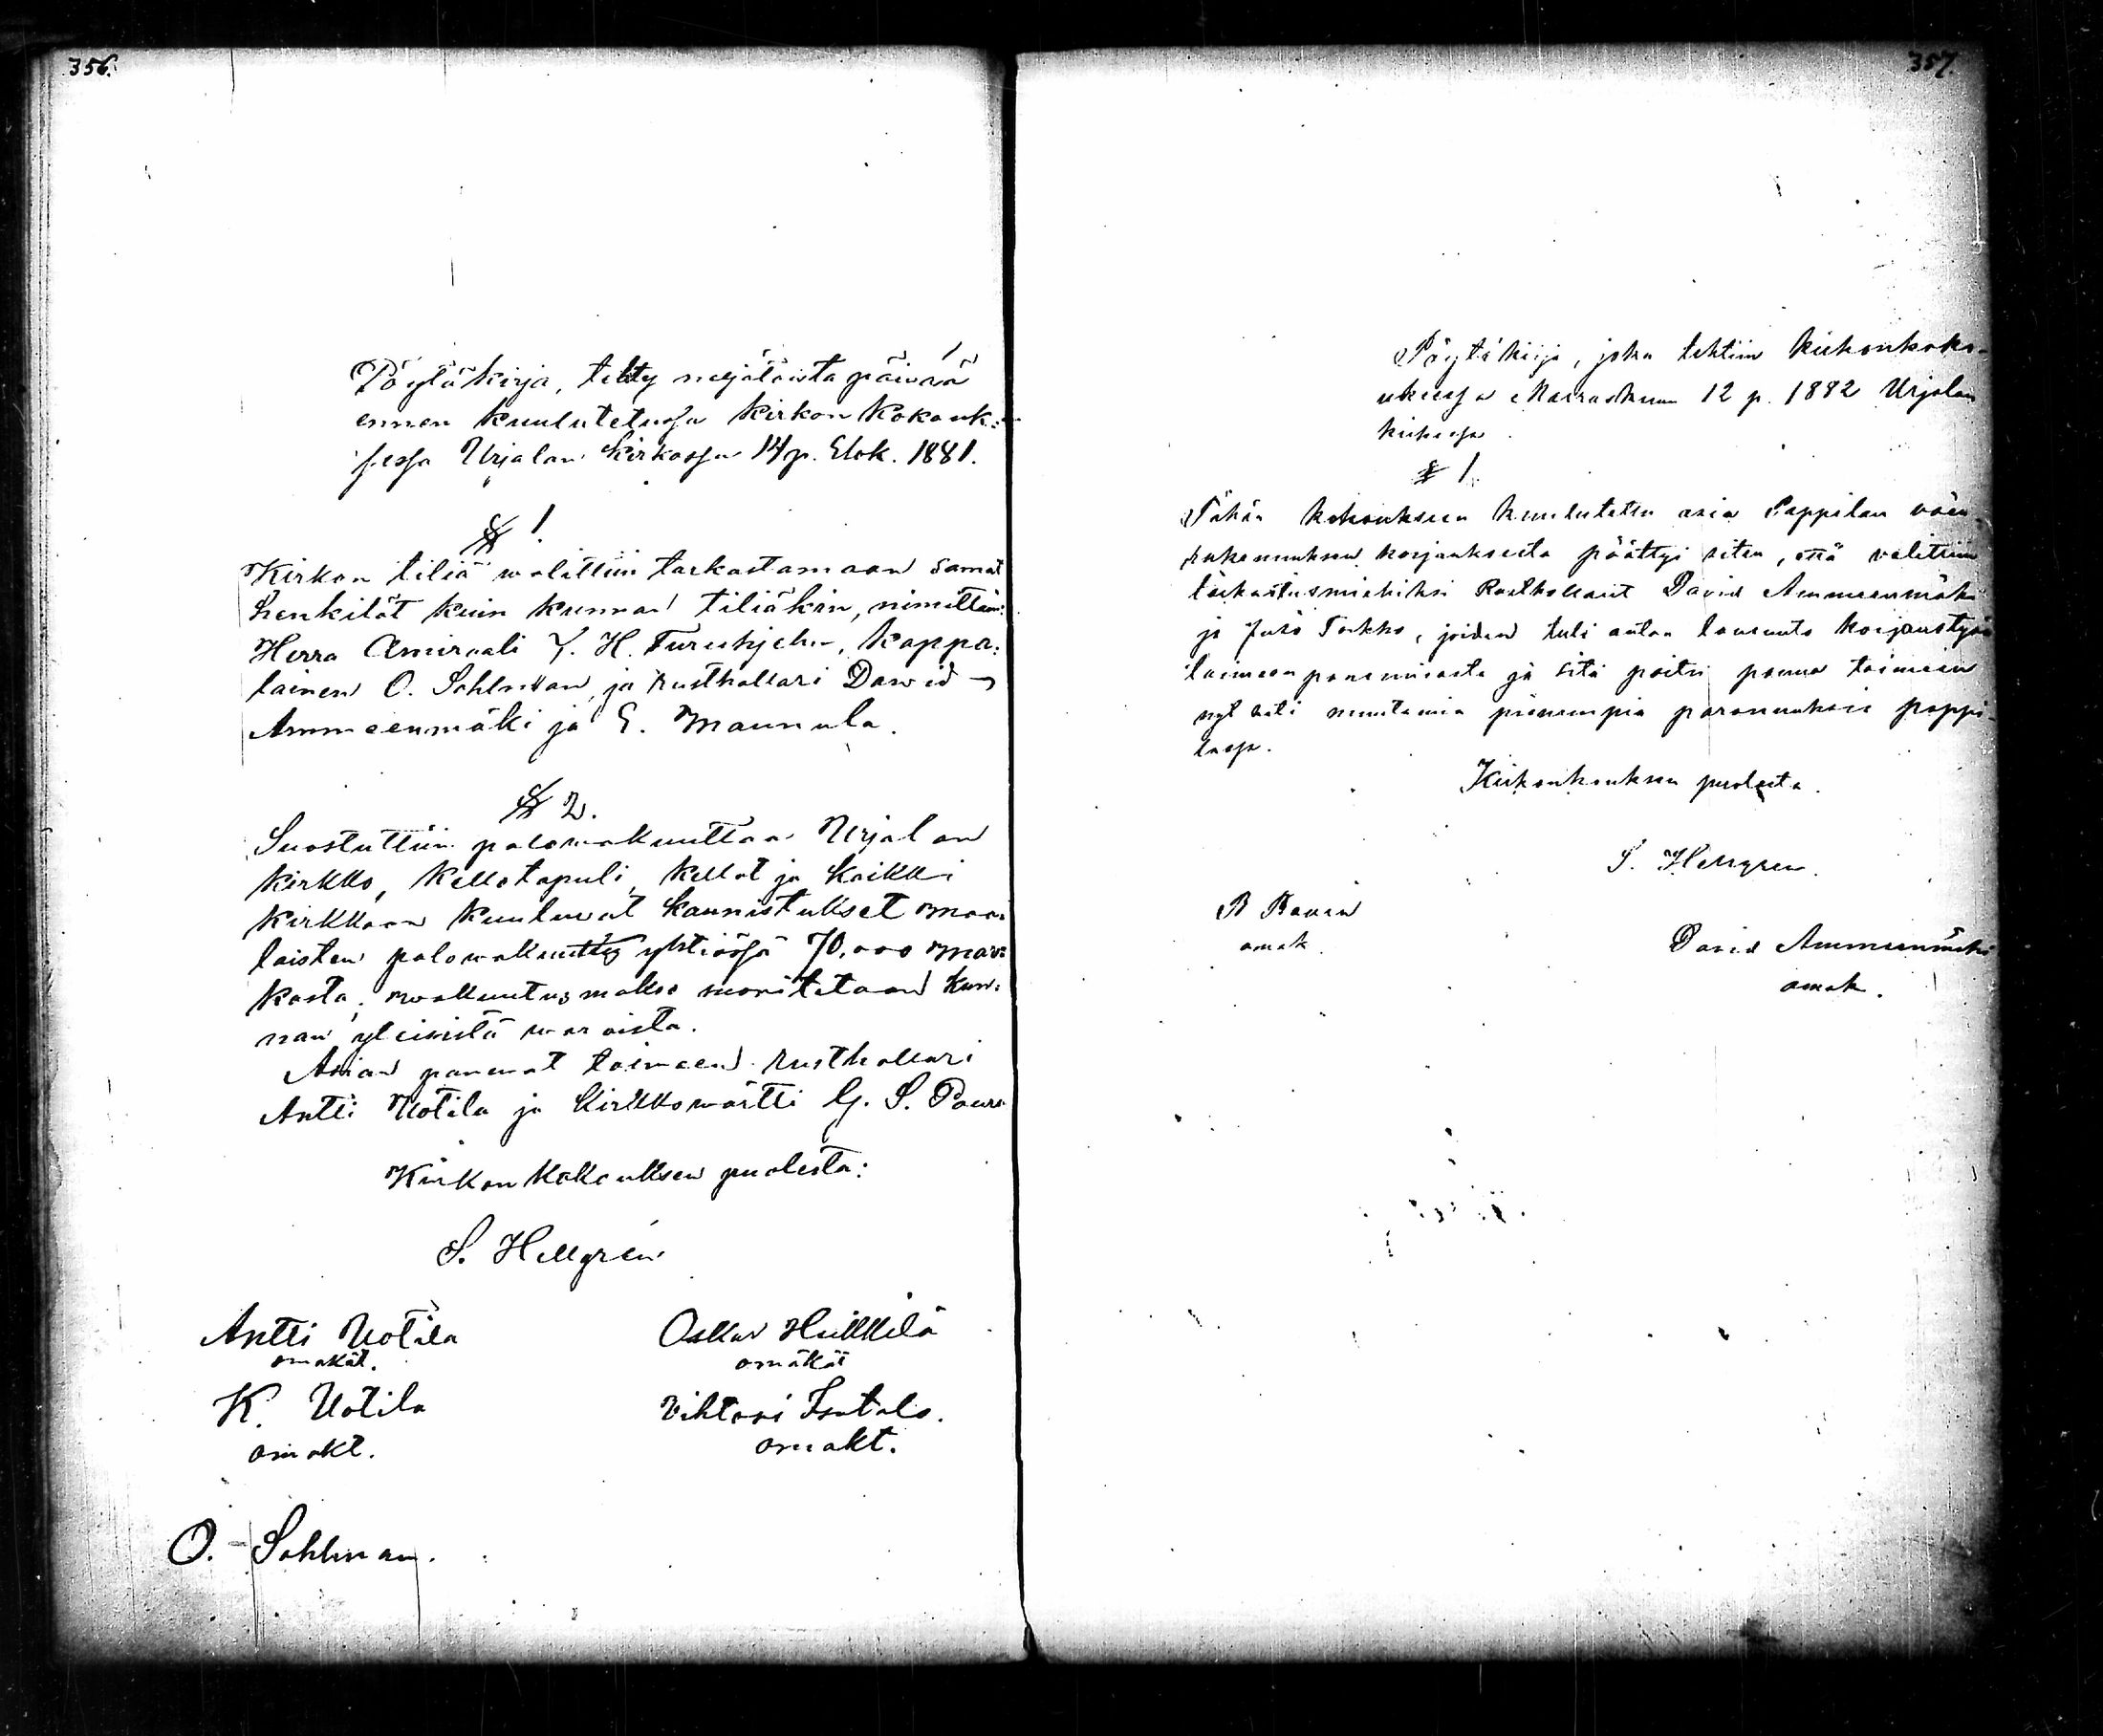 356.
Pöytäkirja, tehty neljätoista päiwää
ennen kuulutetussa Kirkon Kokouk:
sessa Urjalan Kirkossa 14 p. Elok. 1881.
§ 1.
Kirkon tiliä walittiin tarkastamaan samat
henkilöt kuin kunnan tiliäkin, nimittäin:
Herra Amiraali H. Furuhjelm, Kappa:
lainen O. Sahlman, ja rusthollari Dawid
Ammeenmäki ja E. Maunula.
§ 2.
Suostuttiin palowakuuttaa Urjalan
kirkko, Kellotapuli, kellot ja kaikki
kirkkoon kuuluwat kaunistukset maa:
laisten palowakuutus yhtiössä 70,000 mar:
kasta; wakuutus maksu suoritetaan kun:
nan yleisistä waroista.
Asian panewat toimeen rusthollari
Antti Uotila ja Kirkkowärtti G. S.
Kirkon Kokouksen puolesta:
S. Hellgren
Antti Uotila Oskar Heikkilä
omakät. omakät
K. Uotila Vihtori Isotalo.
omakt. omakt.
O. Sahlman.
357.
Pöytäkirja, joka tehtiin kirkonkoko-
uksessa Marraskuun 12 p. 1882 Urjalan
kirkossa.
§ 1.
Tähän kokoukseen kuulutettu asia Pappilan
rakennuksen korjauksesta päättyi siten, että valittiin
tarkastusmiehiksi Rusthollarit David Ammeenmäki
ja Juho Torkko, joiden tuli antaa lausunto korjaustyön
toimeen panemisesta ja sitä paitsi panna toimeen
nyt heti muutamia pienempiä parannuksia pappi-
lassa.
Kirkonkokouksen puolesta.
S. Hellgren.
omak. David Ammeenmäki
omak.